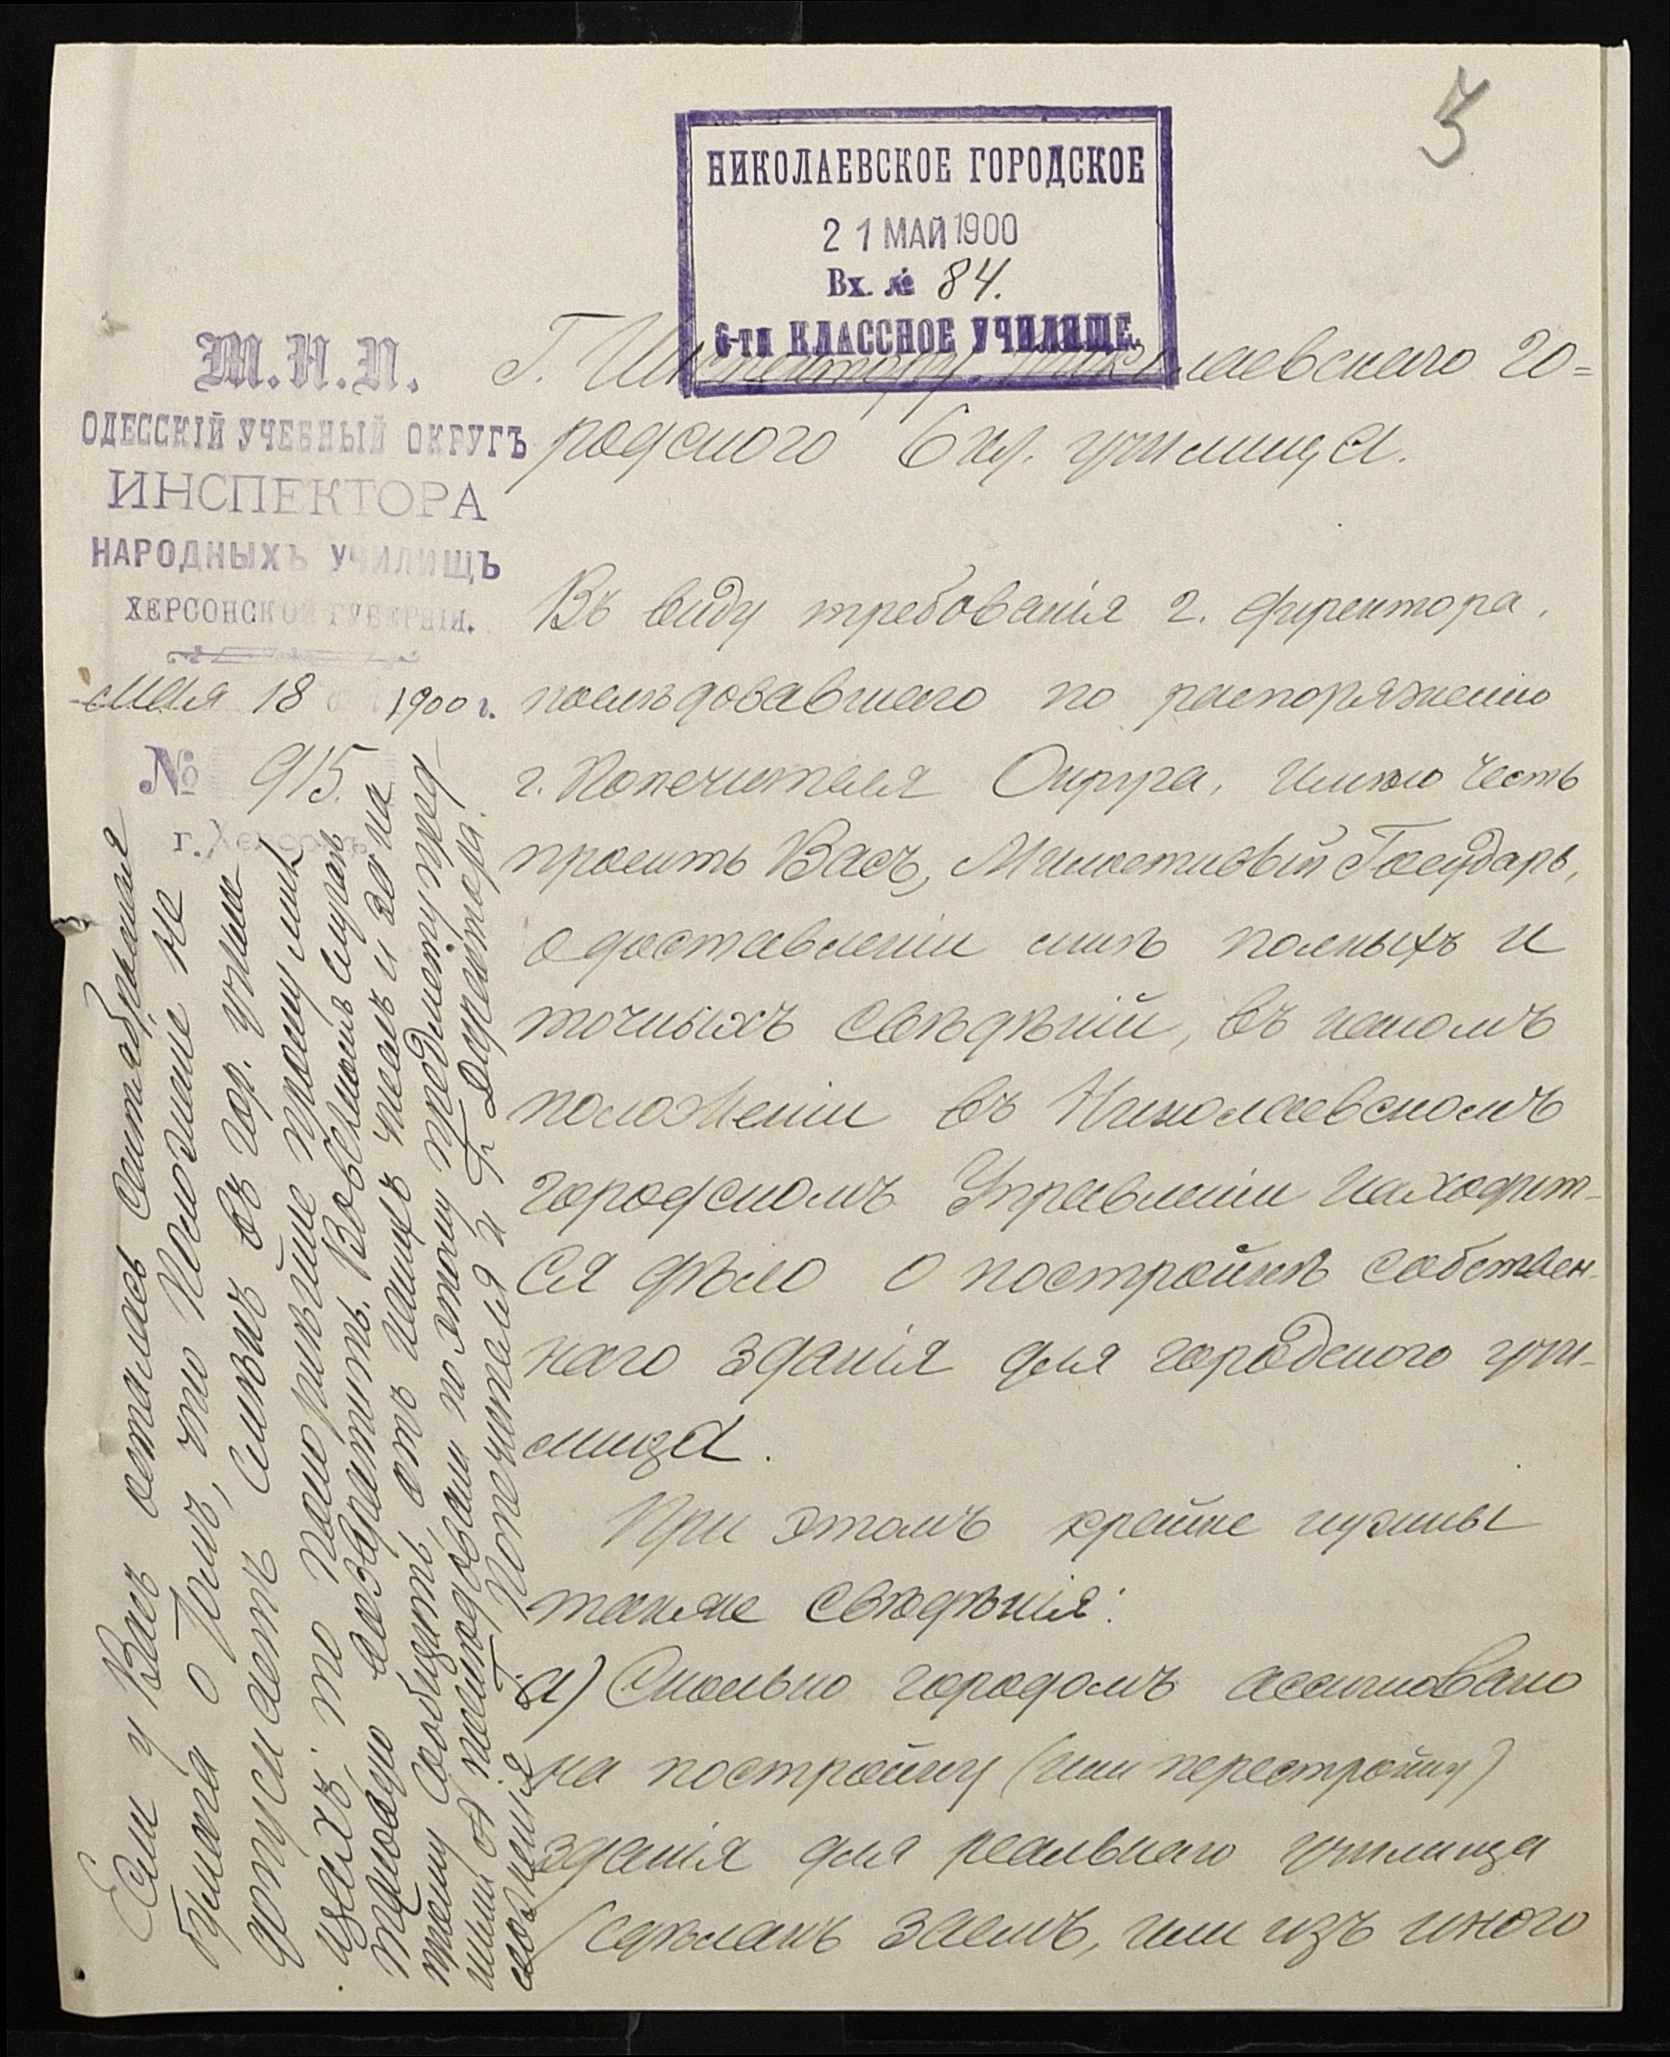 5
НИКОЛАЕВСКОЕ ГОРОДСКОЕ
21 МАЙ 1900
Вх. № 84.
6-ти КЛАССНОЕ УЧИЛИЩЕ.
М.Н.П.
ОДЕССКІЙ УЧЕБНЫЙ ОКРУГЪ
ИНСПЕКТОРА
НАРОДНЫХЪ УЧИЛИЩЪ
ХЕРСОНСКОЙ ГУБЕРНІИ.
Мая 18 1900 г.
№ 915.
г. Херсонъ
Г. Инспектору Николаевскаго го=
родского 6 кл. училища.
Въ виду требованія г. Директора,
послѣдовавшаго по распоряженію
г. Попечителя Округа, имѣю честь
просить Васъ, Милостивый Государь,
о доставленіи мнѣ полныхъ и
точныхъ свѣдѣній, въ какомъ
положеніи въ Николаевскомъ
городскомъ Управленіи находит-
ся дѣло о постройкѣ собствен-
наго зданія для городского учи-
лища.
При этомъ крайне нужны
также свѣдѣнія:
а) Сколько городомъ ассигновано
на постройку (или перестройку)
зданія для реальнаго училища
(сдѣланъ заемъ, или изъ иного
Если у Васъ осталась
бумага о томъ, что Положеніе не
допускаетъ въ гор. учили-
щахъ, то покорнѣйше прошу мнѣ
возвратить. Во всякомъ случаѣ
сообщить, отъ
по этому предмету пред-
г. Попечителя и г. Директора.